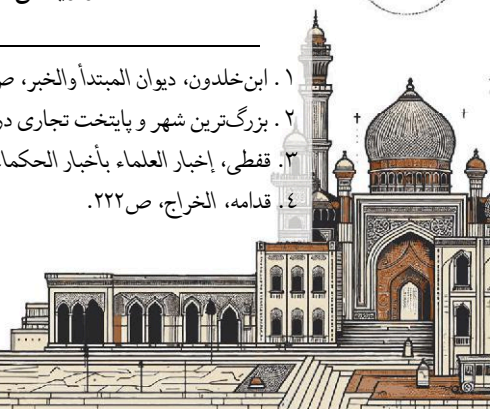 ١. ابن‌خلدون، دیوان المبتدأ والخبر،
٢. بزرگ‌ترین شهر و پایتخت تجاری
٣. قفطی، إخبار العلماء بأخبار الحکماء
٤. قدامه، الخراج، ص٢٢٢.